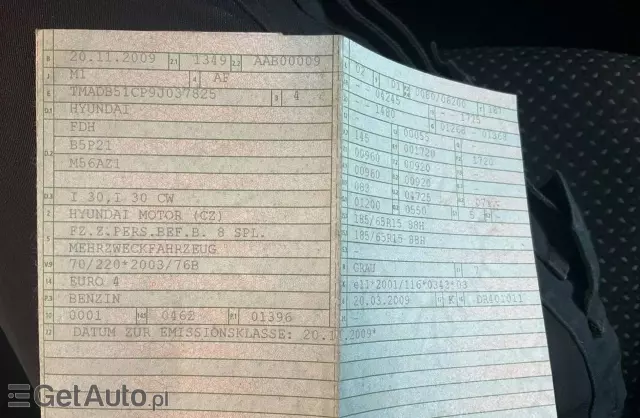 B 20.11.2009 2.1 1349 2.2 AAB00009
J M1 4 AF
E TMADB51CP9J037825 3 4
D.1 HYUNDAI
FDH
D.2 B5P21
M56AZ1
D.3 I 30,I 30 CW
2 HYUNDAI MOTOR (CZ)
5 FZ.Z.PERS.BEF.B. 8 SPL.
MEHRZWECKFAHRZEUG
V.9 70/220*2003/76B
14 EURO 4
P.3 BENZIN
10 0001 14.1 0462 P.1 01396
22 DATUM ZUR EMISSIONSKLASSE: 20.11.2009*
02
04245 1775
1480 01268
145 00055
00960 001720 1720
00960 00920
083 00920
01200 04725
0550 5
185/65R15 88H
185/65R15 88H
GRAU 7
e11*2001/116*0343*03
20.03.2009 K
GetAuto.pl